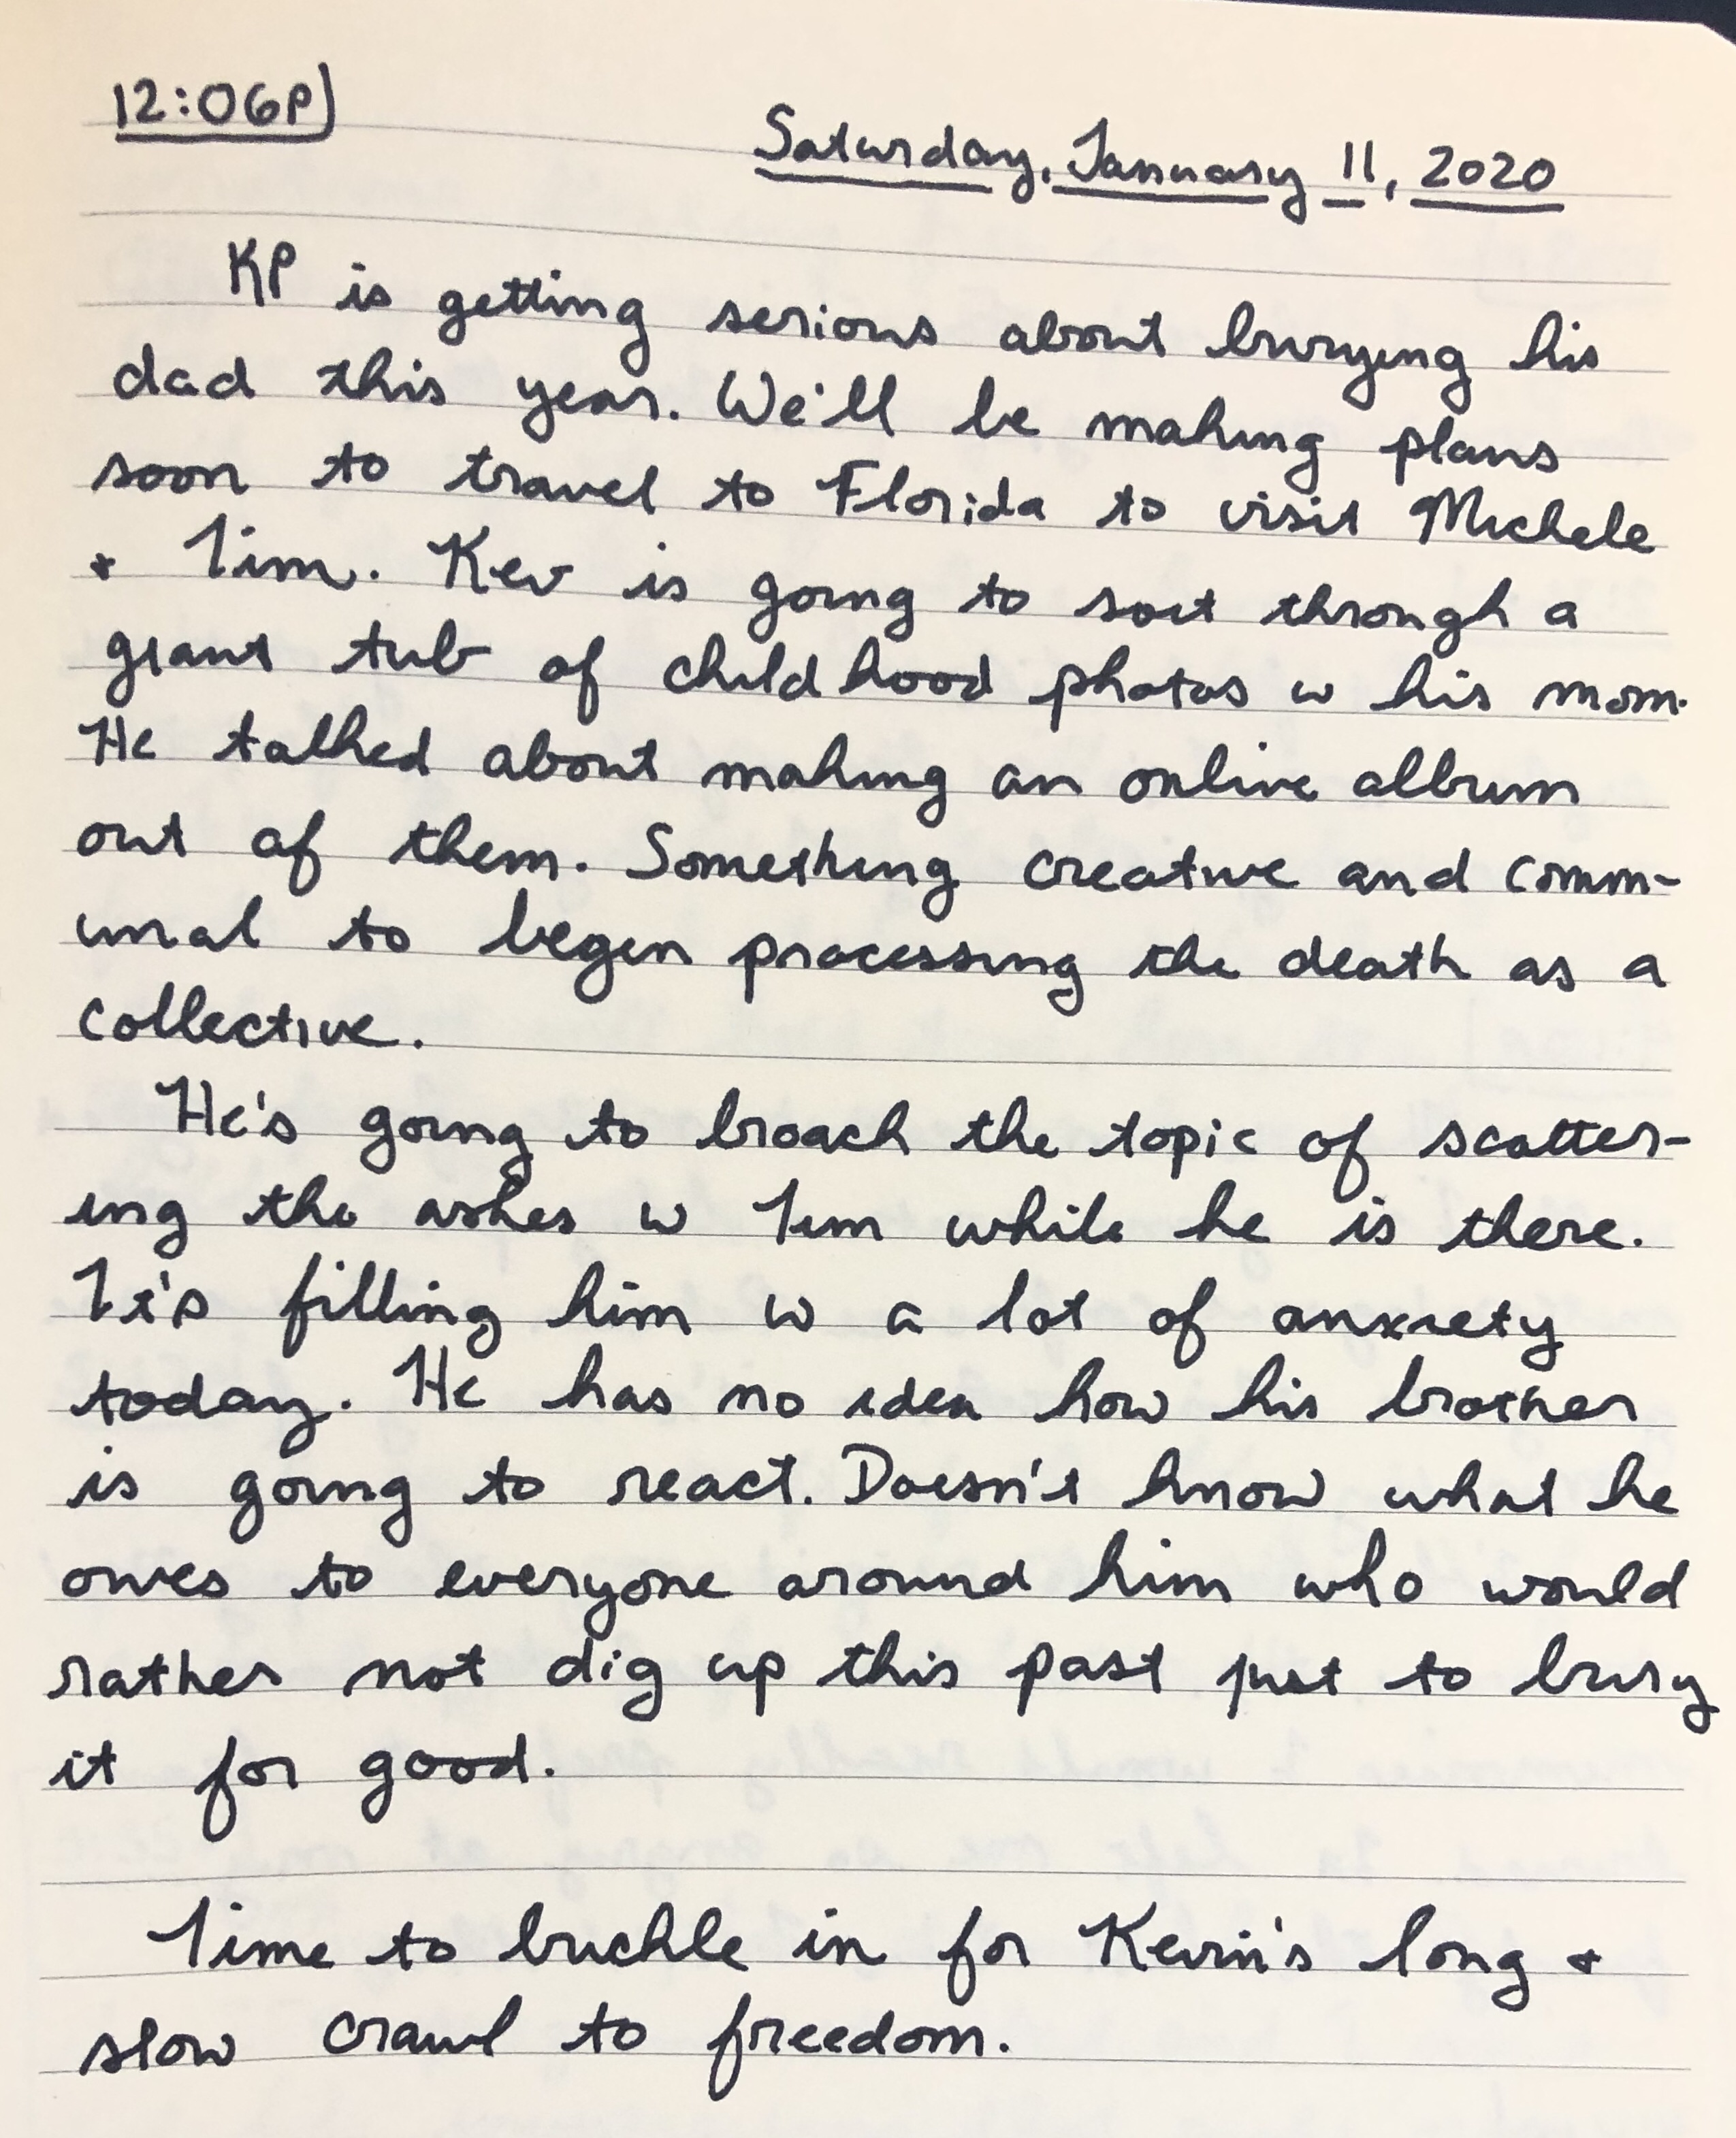 12:06P)
Saturday, January 11, 2020
KP is getting serious about burying his
dad this year. We'll be making plans
soon to travel to Florida to visit Michele
+ Tim. Kev is going to sort through a
giant tub of childhood photos w his mom.
He talked about making an online album
out of them. Something creative and comm-
unal to begin processing the death as a
collective.
He's going to broach the topic of scatter-
ing the ashes w Tim while he is there.
It's filling him w a lot of anxiety
today. He has no idea how his brother
is going to react. Doesn't know what he
owes to everyone around him who would
rather not dig up this past just to bury
it for good.
Time to buckle in for Kevin's long +
slow crawl to freedom.